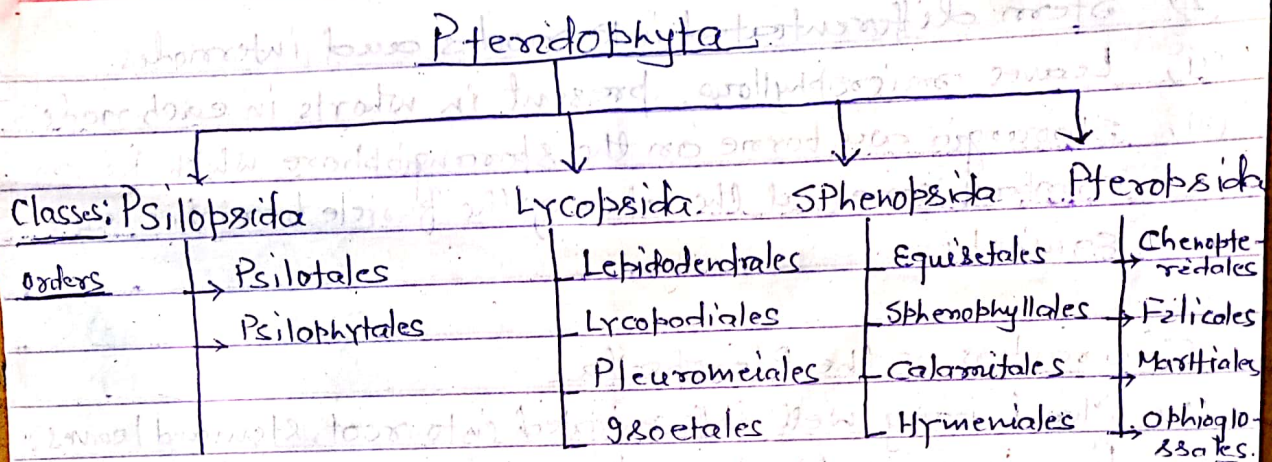 Pteridophyta
Classes: Psilopsida Lycopsida. Sphenopsida Pteropsida
orders
Psilotales
Psilophytales
Lepidodendrales
Lycopodiales
Pleuromeiales
Isoetales
Equisetales
Sphenophyllales
Calamitales
Hymeniales
Chenopte-
redales
Filicales
Marttiales
Ophioglo-
ssales.